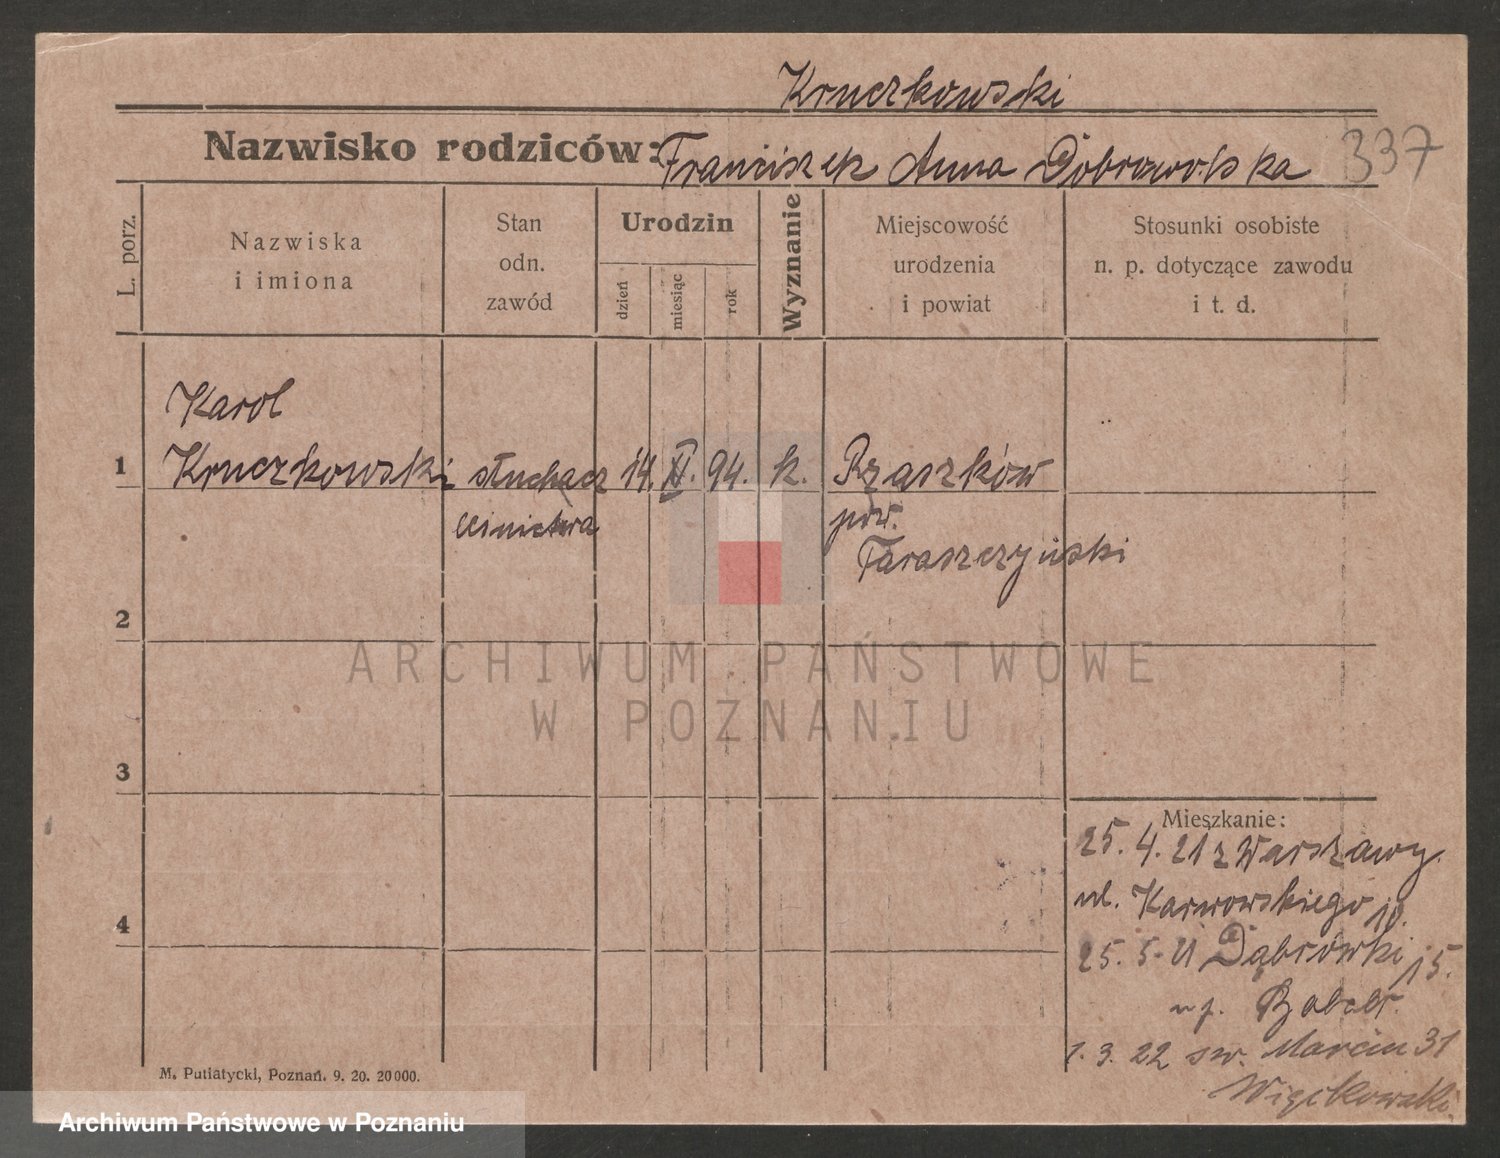 Kruczkowski
Nazwisko rodziców: Franciszek Anna Dobrowolska 337
L. porz.
Nazwiska
i imiona
Stan
odn.
zawód
Urodzin
dzień
miesiąc
rok
Wyznanie
Miejscowość
urodzenia
i powiat
Stosunki osobiste
n. p. dotyczące zawodu
i t. d.
Karol
1 Kruczkowski słuchacz 14. XI. 94. k. Rzaszków
pow.
Taraszczyński
2
ARCHIWUM PAŃSTWOWE
W POZNANIU
3
Mieszkanie:
25. 4. 21 z Warszawy.
ul. Karwowskiego 10.
4
25. 5. 21 Dąbrówki 15.
1. 3. 22 św. Marcin 31
M. Putiatycki, Poznań. 9. 20. 20000.
Archiwum Państwowe w Poznaniu